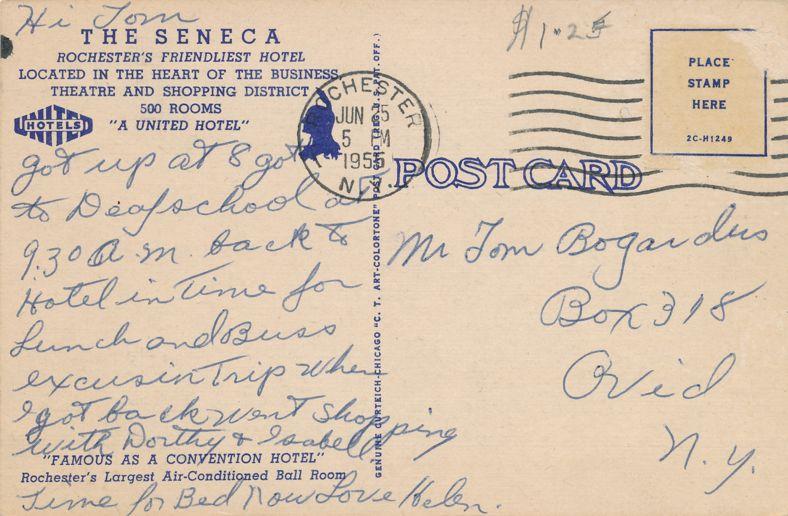 Hi Tom
THE SENECA
ROCHESTER'S FRIENDLIEST HOTEL
LOCATED IN THE HEART OF THE BUSINESS,
THEATRE AND SHOPPING DISTRICT
500 ROOMS
UNITED HOTELS
"A UNITED HOTEL"
got up at 8 got
to Deafschool at
9:30 A.m. back to
Hotel in Time for
Lunch and Buss
excusin Trip When
I got back went shopping
with Dorthy & Isabell
"FAMOUS AS A CONVENTION HOTEL"
Rochester's Largest Air-Conditioned Ball Room
Time for Bed Now Love Helen.
GENUINE CURTEICH-CHICAGO "C. T. ART-COLORTONE" POST CARD (REG. U. S. PAT. OFF.)
ROCHESTER
JUN
5 M
1955
N.Y.
POST CARD
$1.25
PLACE
STAMP
HERE
2C-H1249
Mr Tom Bogardus
Box 318
Ovid
N.Y.